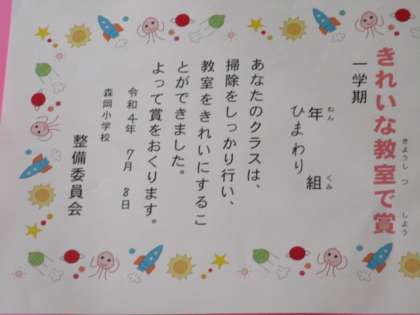 きれいな教室で賞
きょうしつ しょう
一学期
年 組
ねん くみ
ひまわり
あなたのクラスは、
掃除をしっかり行い、
教室をきれいにするこ
とができました。
よって賞をおくります。
令和4年 7月 8日
森岡小学校
整備委員会